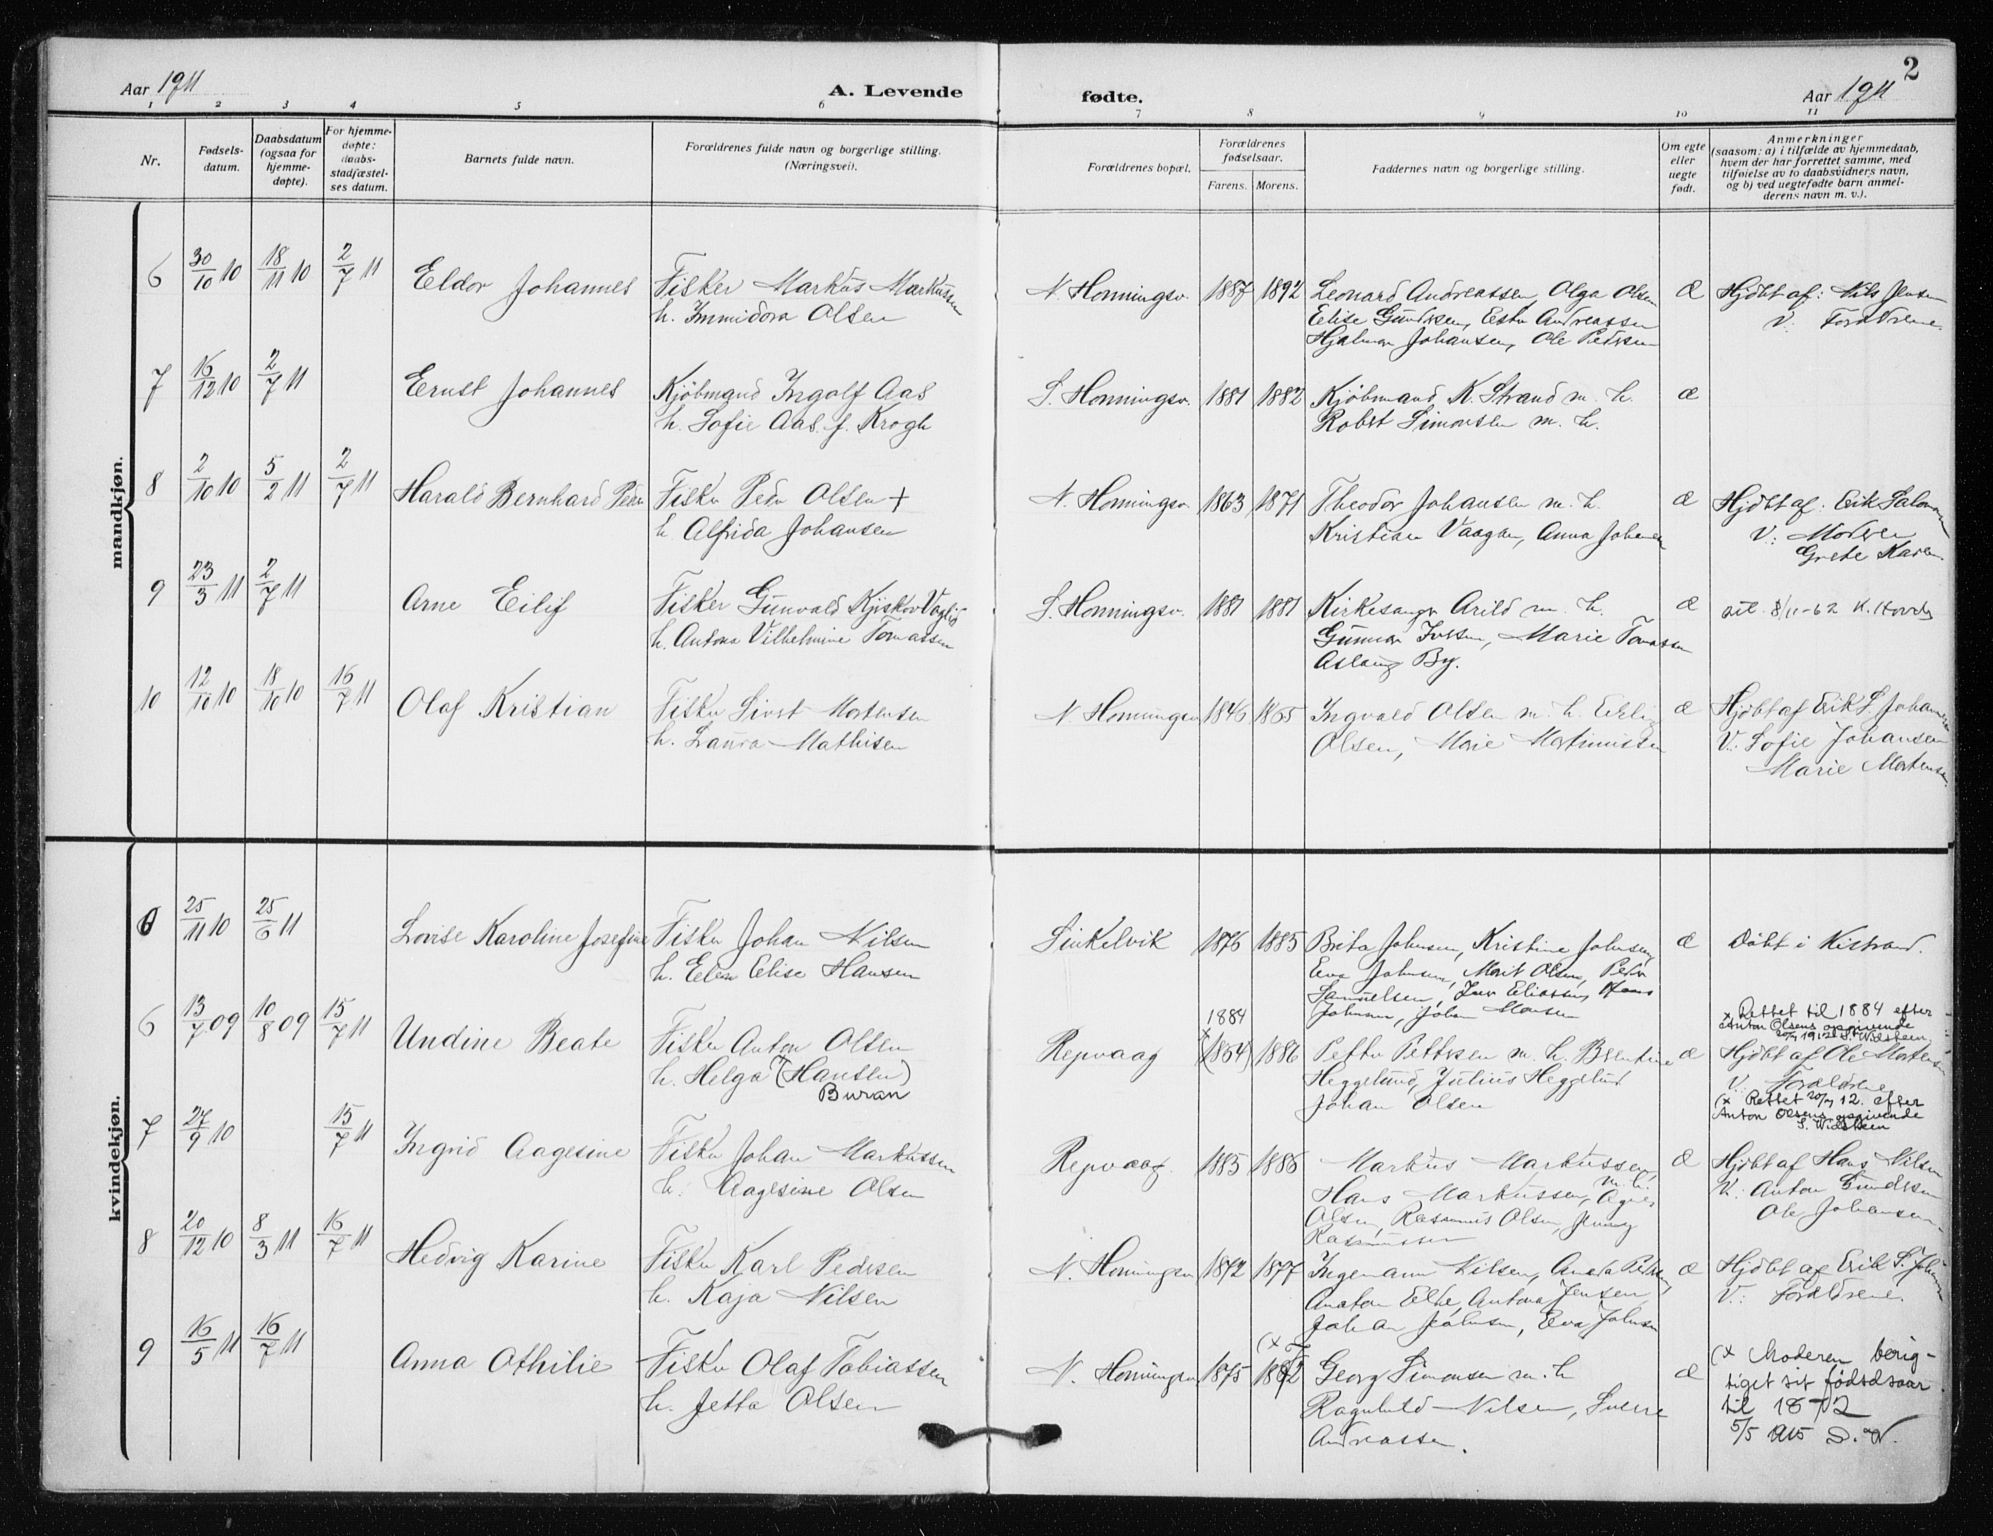 2
Aar 1911
A. Levende
fødte.
Aar 1911
1 2 3 4 5 6 7 8 9 10 11
Nr.
Fødsels-
datum.
Daabsdatum
(ogsaa for
hjemme-
døpte).
For hjemme-
døpte:
daabs-
stadfæstel-
ses datum.
Barnets fulde navn.
Forældrenes fulde navn og borgerlige stilling.
(Næringsvei).
Forældrenes bopæl.
Forældrenes
fødselsaar.
Farens. Morens.
Faddernes navn og borgerlige stilling.
Om egte
eller
uegte
født.
Anmerkninger
(saasom: a) i tilfælde av hjemmedaab,
hvem der har forrettet samme, med
tilføielse av to daabsvidners navn,
og b) ved uegtefødte barn anmel-
derens navn m. v.).
mandkjøn.
6 30/10 10 18/11 10 2/7 11 Eldor Johannes Fisker Markus Markussen N. Honningsv. 1887 1892 Leonard Andreassen, Olga Olsen Æ Hjdbt af: Nils Jensen
h. Immidora Olsen Elise Gundersen, Ester Andreassen V: Forældrene.
Hjalmar Johansen, Ole Pedersen
7 16/12 10 2/7 11 Ernst Johannes Kjöbmand Ingolf Aas S. Honningsv. 1881 1882 Kjöbmand K. Strand m. h. Æ
h. Sofie Aas f. Krogh Robert Simonsen m. h.
8 2/10 10 5/2 11 2/7 11 Harald Bernhard Peder Fisker Peder Olsen + N. Honningsv. 1863 1871 Theodor Johansen m. h. Æ Hjdbt af: Erik Salomon
h. Alfrida Johansen Kristian Vaagan, Anna Johansen V: Moderen
Grete Karen
9 23/3 11 2/7 11 Arne Eilif Fisker Gunvald Kjiskov S. Honningsv. 1881 1881 Kirkesanger Arild m. h. Æ 8/11-62
h. Antona Vilhelmine Tomassen Gunnar Iversen, Marie Tomassen
Aslaug By.
10 12/10 10 18/10 10 16/7 11 Olaf Kristian Fisker Sivert Mortensen N. Honningsv 1846 1865 Ingvald Olsen m. h. Erling Æ Hjdbt af Erik S. Johansen
h. Laura Mathisen Olsen, Marie Martinussen V: Sofie Johansen
Marie Mortensen
kvindekjøn.
25/11 10 25/6 11 Lovise Karoline Josefine Fisker Johan Nilsen Sinkelvik 1876 1885 Brita Johnsen, Kristine Johnsen, Æ Döbt i Kistrand.
h. Elen Elise Hansen Eva Johnsen, Marit Olsen, Peder
Samuelsen, Iver Eliassen, Hans
Johnsen, John Monsen
6 13/7 09 10/8 09 15/7 11 Undine Beate Fisker Anton Olsen Repvaag 1884 x (1864) 1886 Petter Pettersen m. h. Berntine Æ x Rettet til 1884 efter
Anton Olsens opgivende
20/7 1912 S. Widsteen
h. Helga (Hansen) Heggelund, Julius Heggelund Hjdbt af Ole Mortensen
Buran Johan Olsen V: Forældrene
(x Rettet 20/7 12. efter
Anton Olsens opgivende
S. Widsteen
7 27/9 10 15/7 11 Ingrid Aagesine Fisker Johan Markussen Repvaag. 1885 1886 Markus Markussen m. h. Æ Hjdbt af Hans Nilsen
h. Aagesine Olsen Hans Markussen, Agnes V: Anton Gundersen
Olsen, Rasmus Olsen, Jenny Ole Johansen
Rasmussen
8 20/12 10 8/3 11 16/7 11 Hedvig Karine Fisker Karl Pedersen N. Honningsv 1872 1877 Ingemann Nilsen, Anata Pedersen, Æ Hjdbt af Erik S. Johansen
h. Kaja Nilsen Anaton Elle, Antona Jensen V: Forældrene.
Johan Johnsen, Eva Johnsen
9 16/5 11 16/7 11 Anna Othilie Fisker Olaf Tobiassen N. Honningsv 1875 (x 1872 Georg Simonsen m. h Æ (x Moderen berig-
h. Jetta Olsen Ragnhild Nilsen, Sverre tiget sit fødselsaar
Andreassen. til 1872
5/5 1915 S. W.